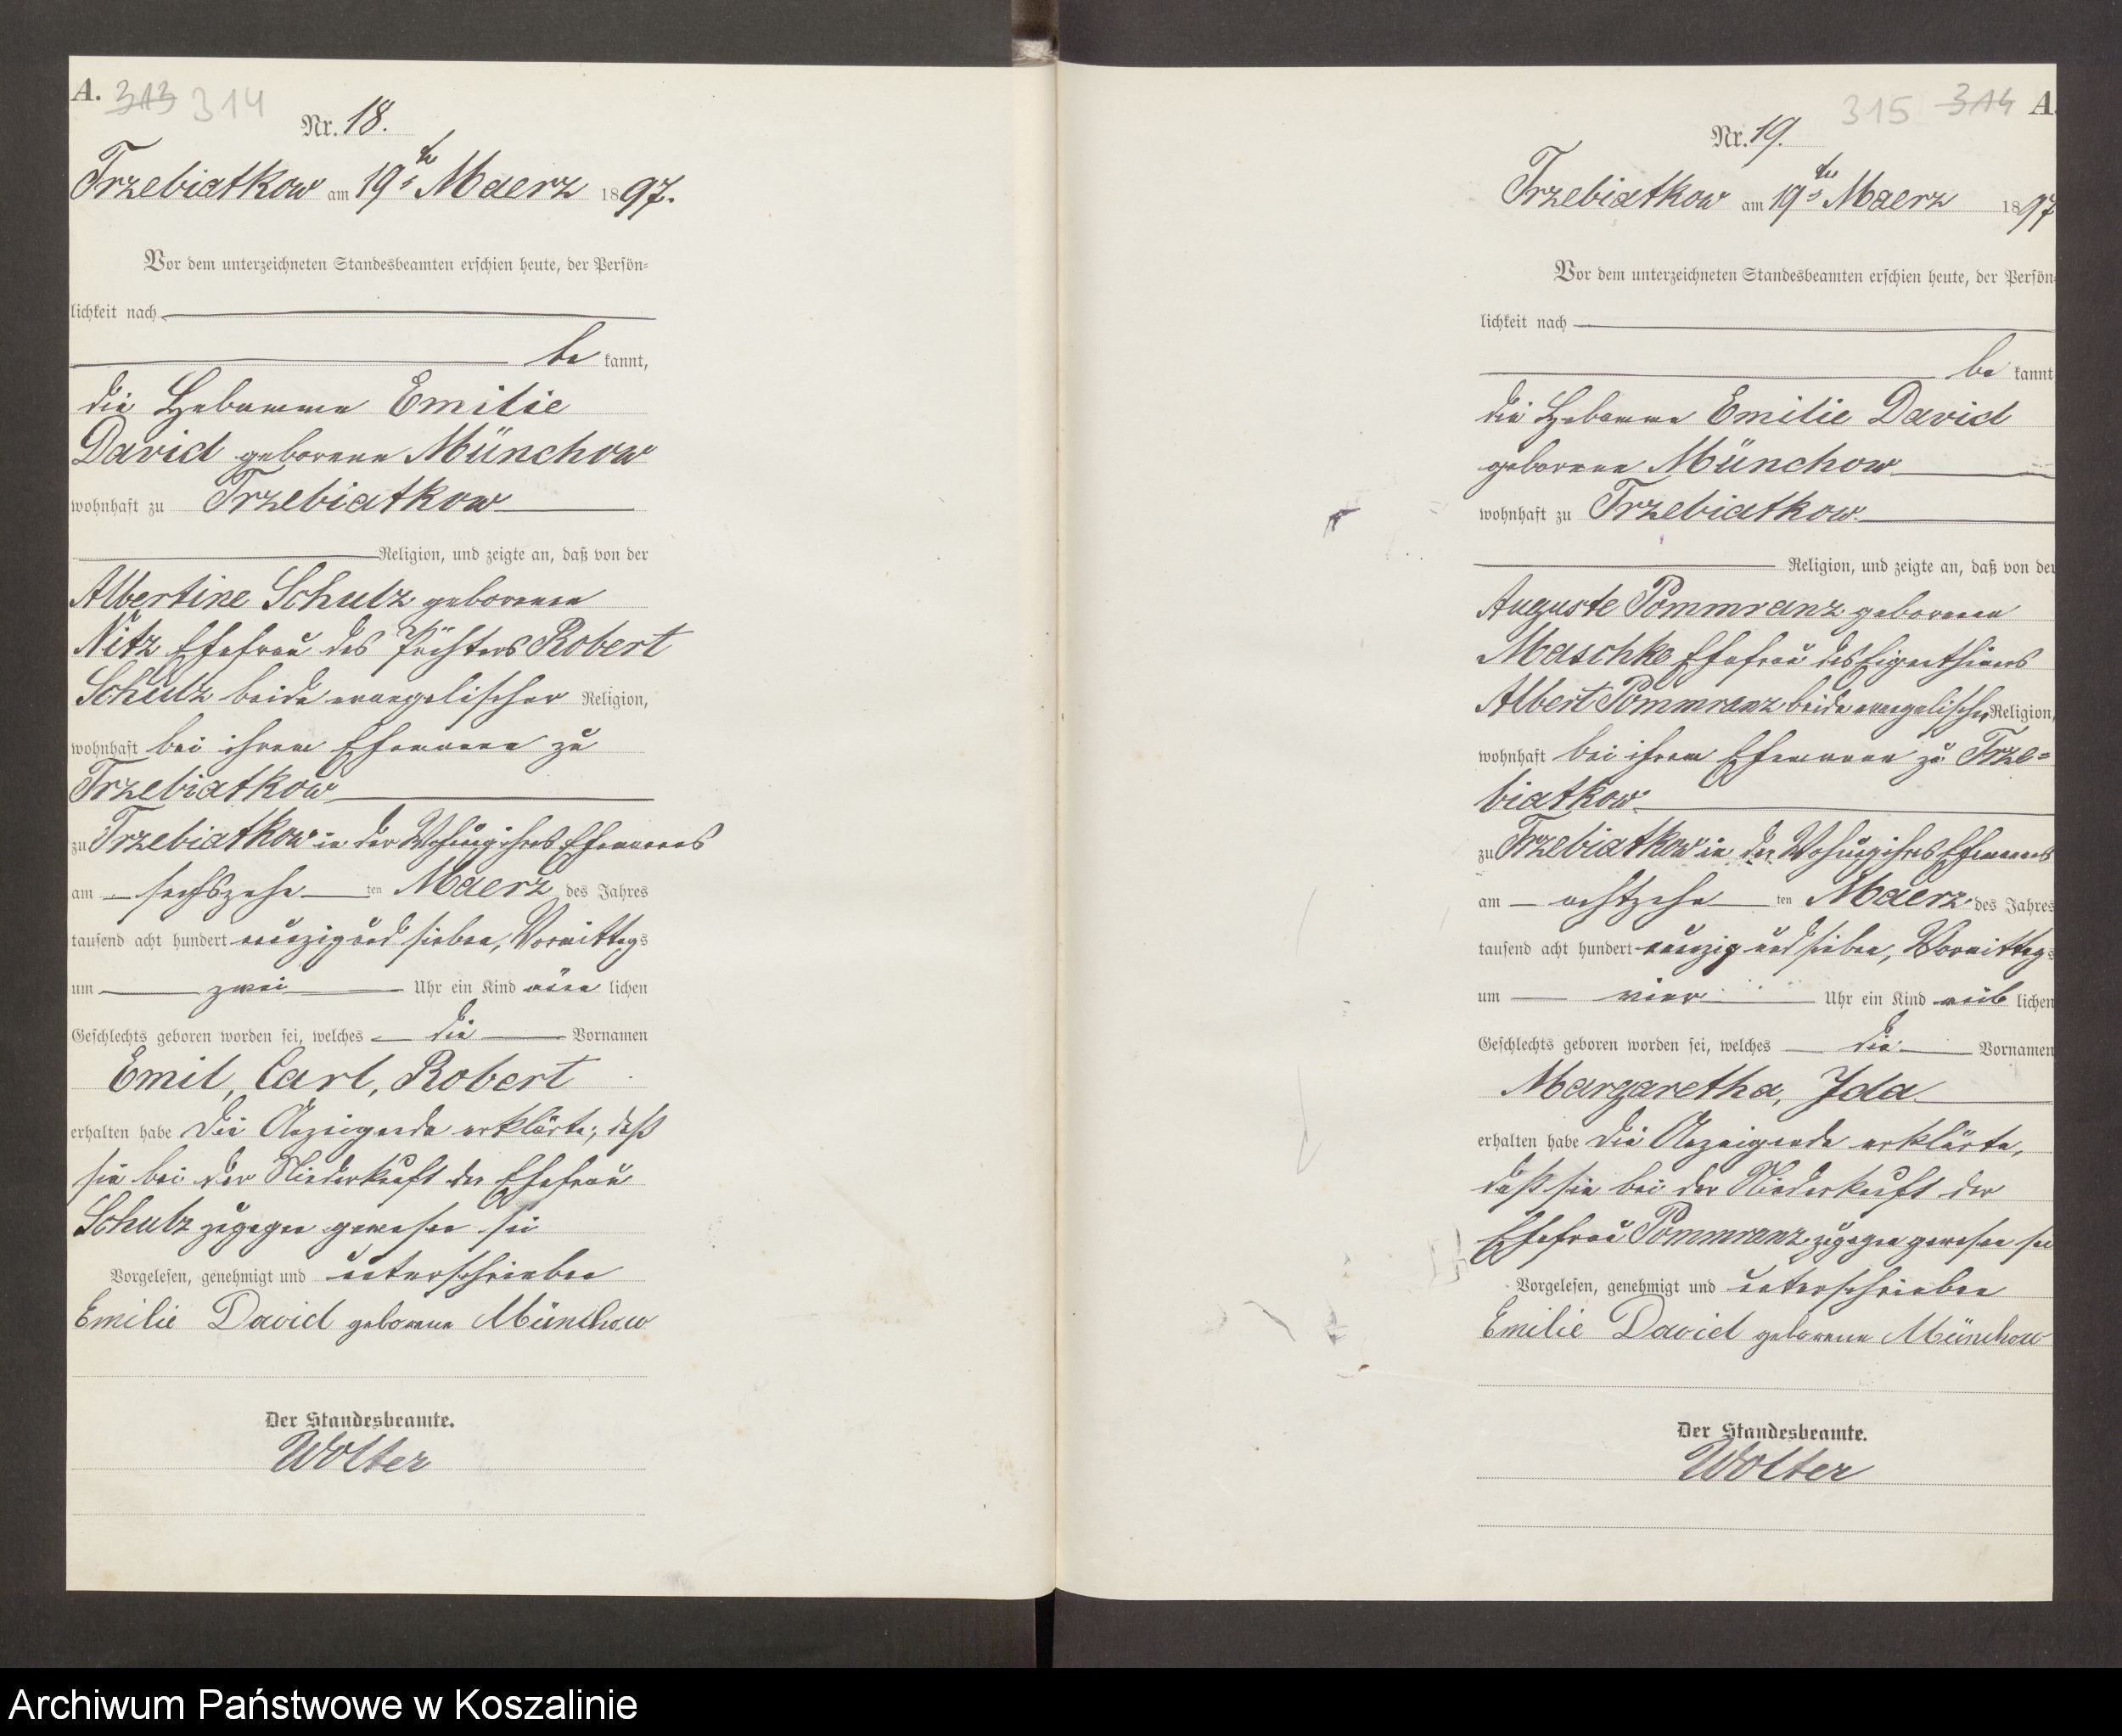 A. 313 314
Nr. 18.
Trzebiatkow am 19ten Maerz 1897.
Vor dem unterzeichneten Standesbeamten erschien heute, der Persön-
lichkeit nach
be kannt,
die Hebamme Emilie
David geborene Münchow
wohnhaft zu Trzebiatkow
Religion, und zeigte an, daß von der
Albertine Schulz geborenen
Nitz Ehefrau des Pächters Robert
Schulz beide evangelischer Religion,
wohnhaft bei ihrem Ehemann zu
Trzebiatkow
zu Trzebiatkow in der Wohnung ihres Ehemannes
am sechszehn ten Maerz des Jahres
tausend acht hundert neunzig und sieben, Vormittags
um zwei Uhr ein Kind männ lichen
Geschlechts geboren worden sei, welches die Vornamen
Emil, Carl, Robert
erhalten habe Die Anzeigende erklärte, daß
sie bei der Niederkunft der Ehefrau
Schulz zugegen gewesen sei
Vorgelesen, genehmigt und unterschrieben
Emilie David geborene Münchow
Der Standesbeamte.
Wolter
315 314 A.
Nr. 19.
Trzebiatkow am 19ten Maerz 1897
Vor dem unterzeichneten Standesbeamten erschien heute, der Persön-
lichkeit nach
be kannt
die Hebamme Emilie David
geborene Münchow
wohnhaft zu Trzebiatkow
Religion, und zeigte an, daß von der
Auguste Pommranz geborenen
Maschke Ehefrau des Eigenthümers
Albert Pommranz beide evangelischer Religion,
wohnhaft bei ihrem Ehemann zu Trze-
biatkow
zu Trzebiatkow in der Wohnung ihres Ehemannes
am achtzehn ten Maerz des Jahres
tausend acht hundert neunzig und sieben, Vormittags
um vier Uhr ein Kind weib lichen
Geschlechts geboren worden sei, welches die Vornamen
Margaretha, Ida
erhalten habe Die Anzeigende erklärte,
daß sie bei der Niederkunft der
Ehefrau Pommranz zugegen gewesen sei
Vorgelesen, genehmigt und unterschrieben
Emilie David geborene Münchow
Der Standesbeamte.
Wolter
Archiwum Państwowe w Koszalinie